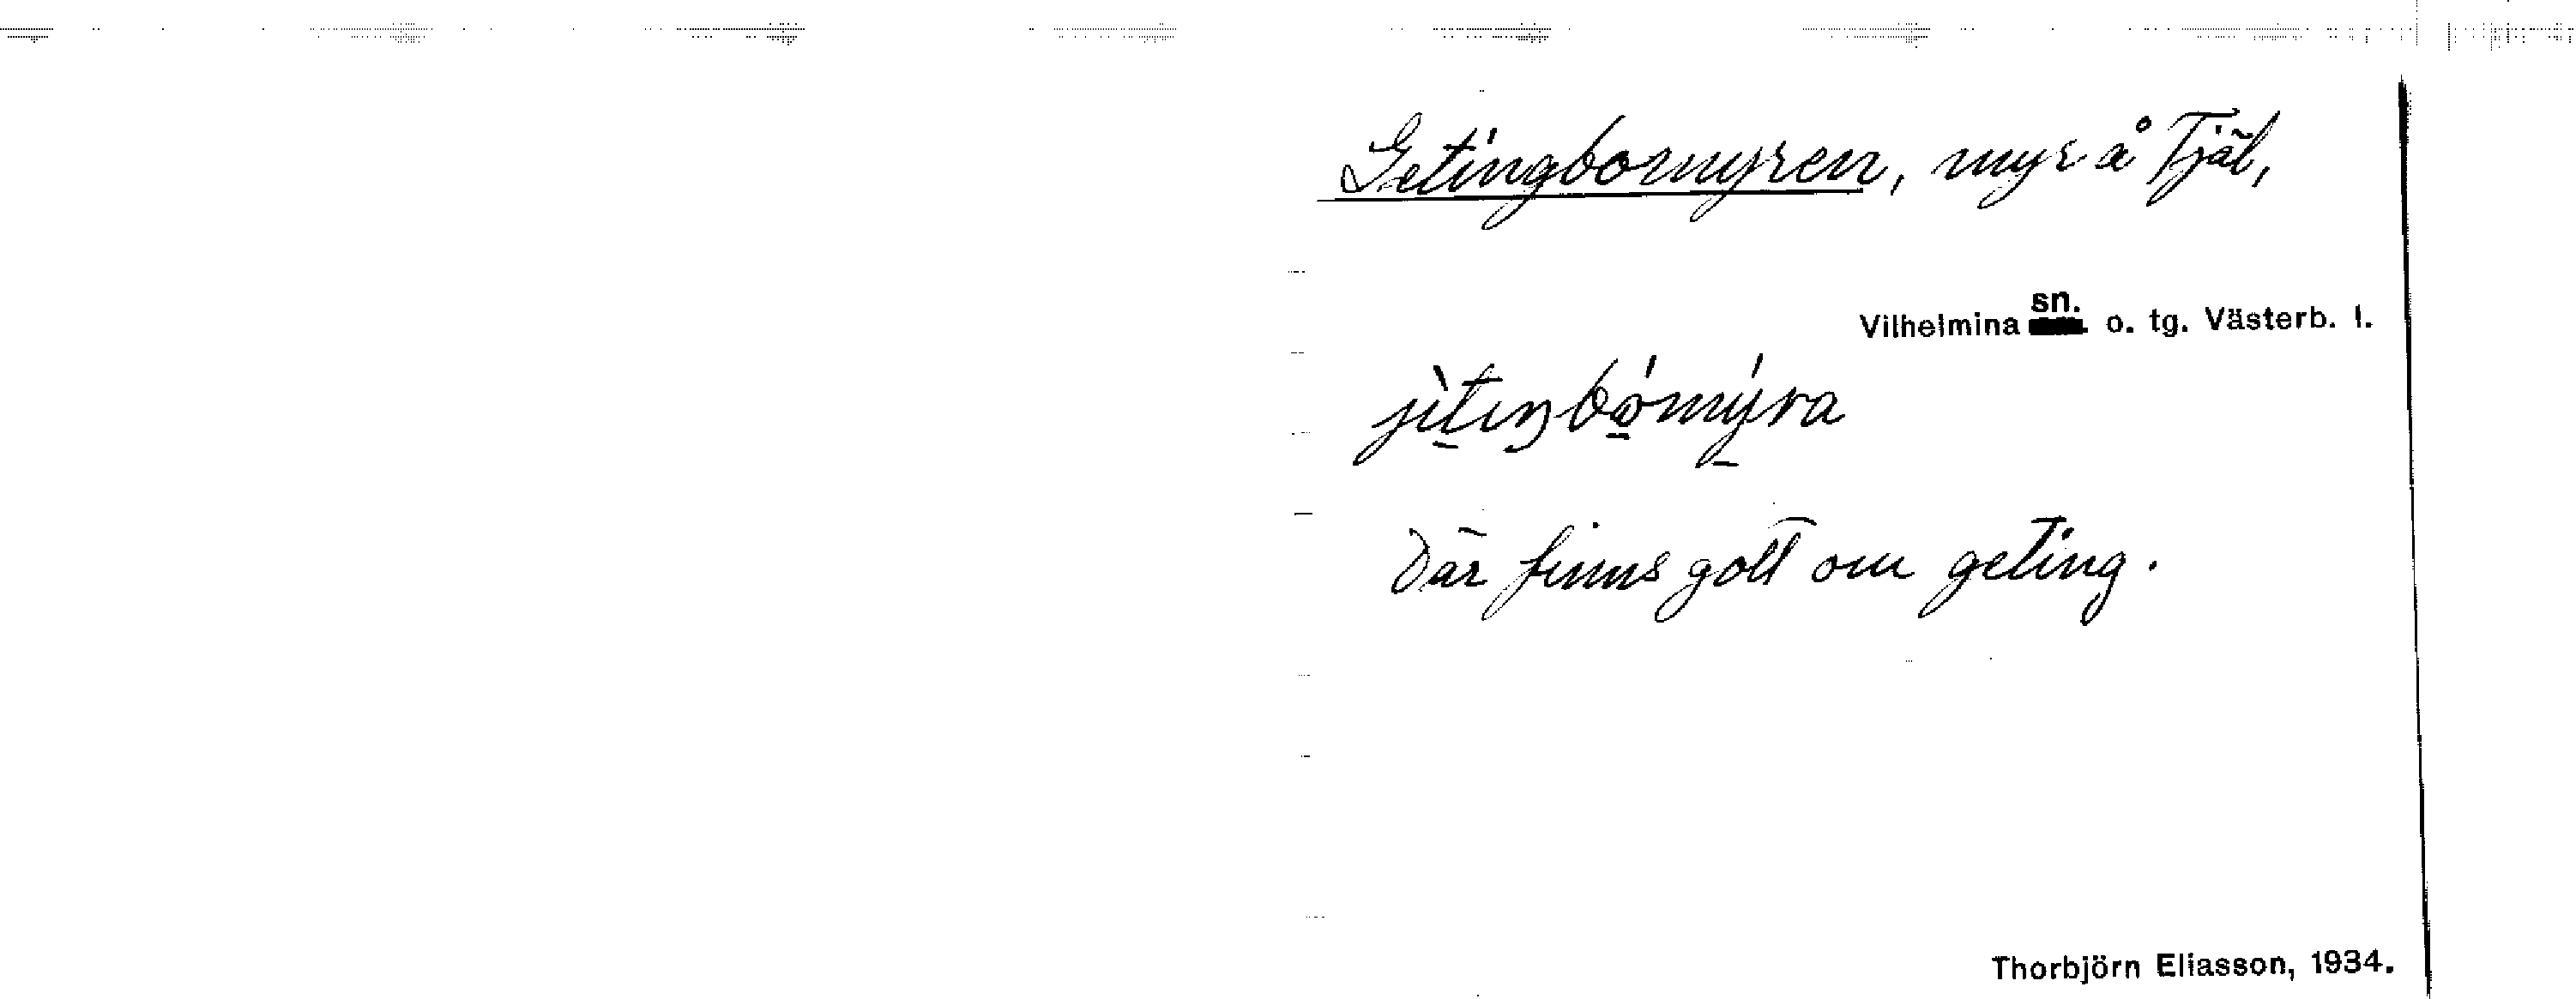 Getingbomyren, myr å Tjäl,
Vilhelmina sn. o. tg. Västerb. l.
jìtiŋbómýra
Där finns gott om geting.
Thorbjörn Eliasson, 1934.